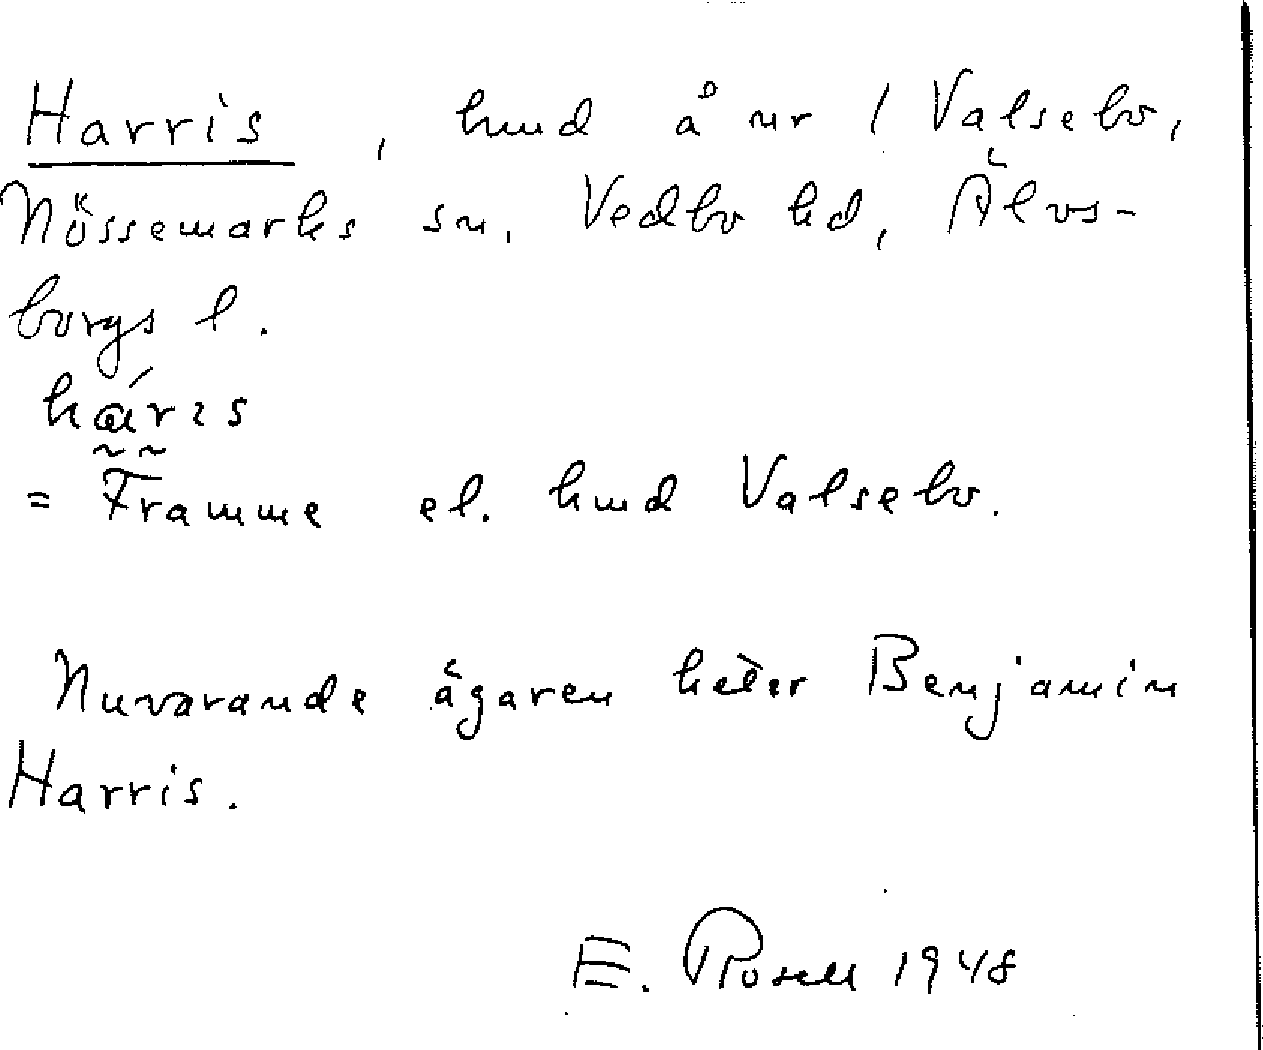 Harris, hmd å nr 1 Valsebo,
Nössemarks sn, Vedbo hd, Älvs-
borgs l.
háris
= Framme el. hmd Valsebo.
Nuvarande ägaren heter Benjamin
Harris.
E. Rosell 1948